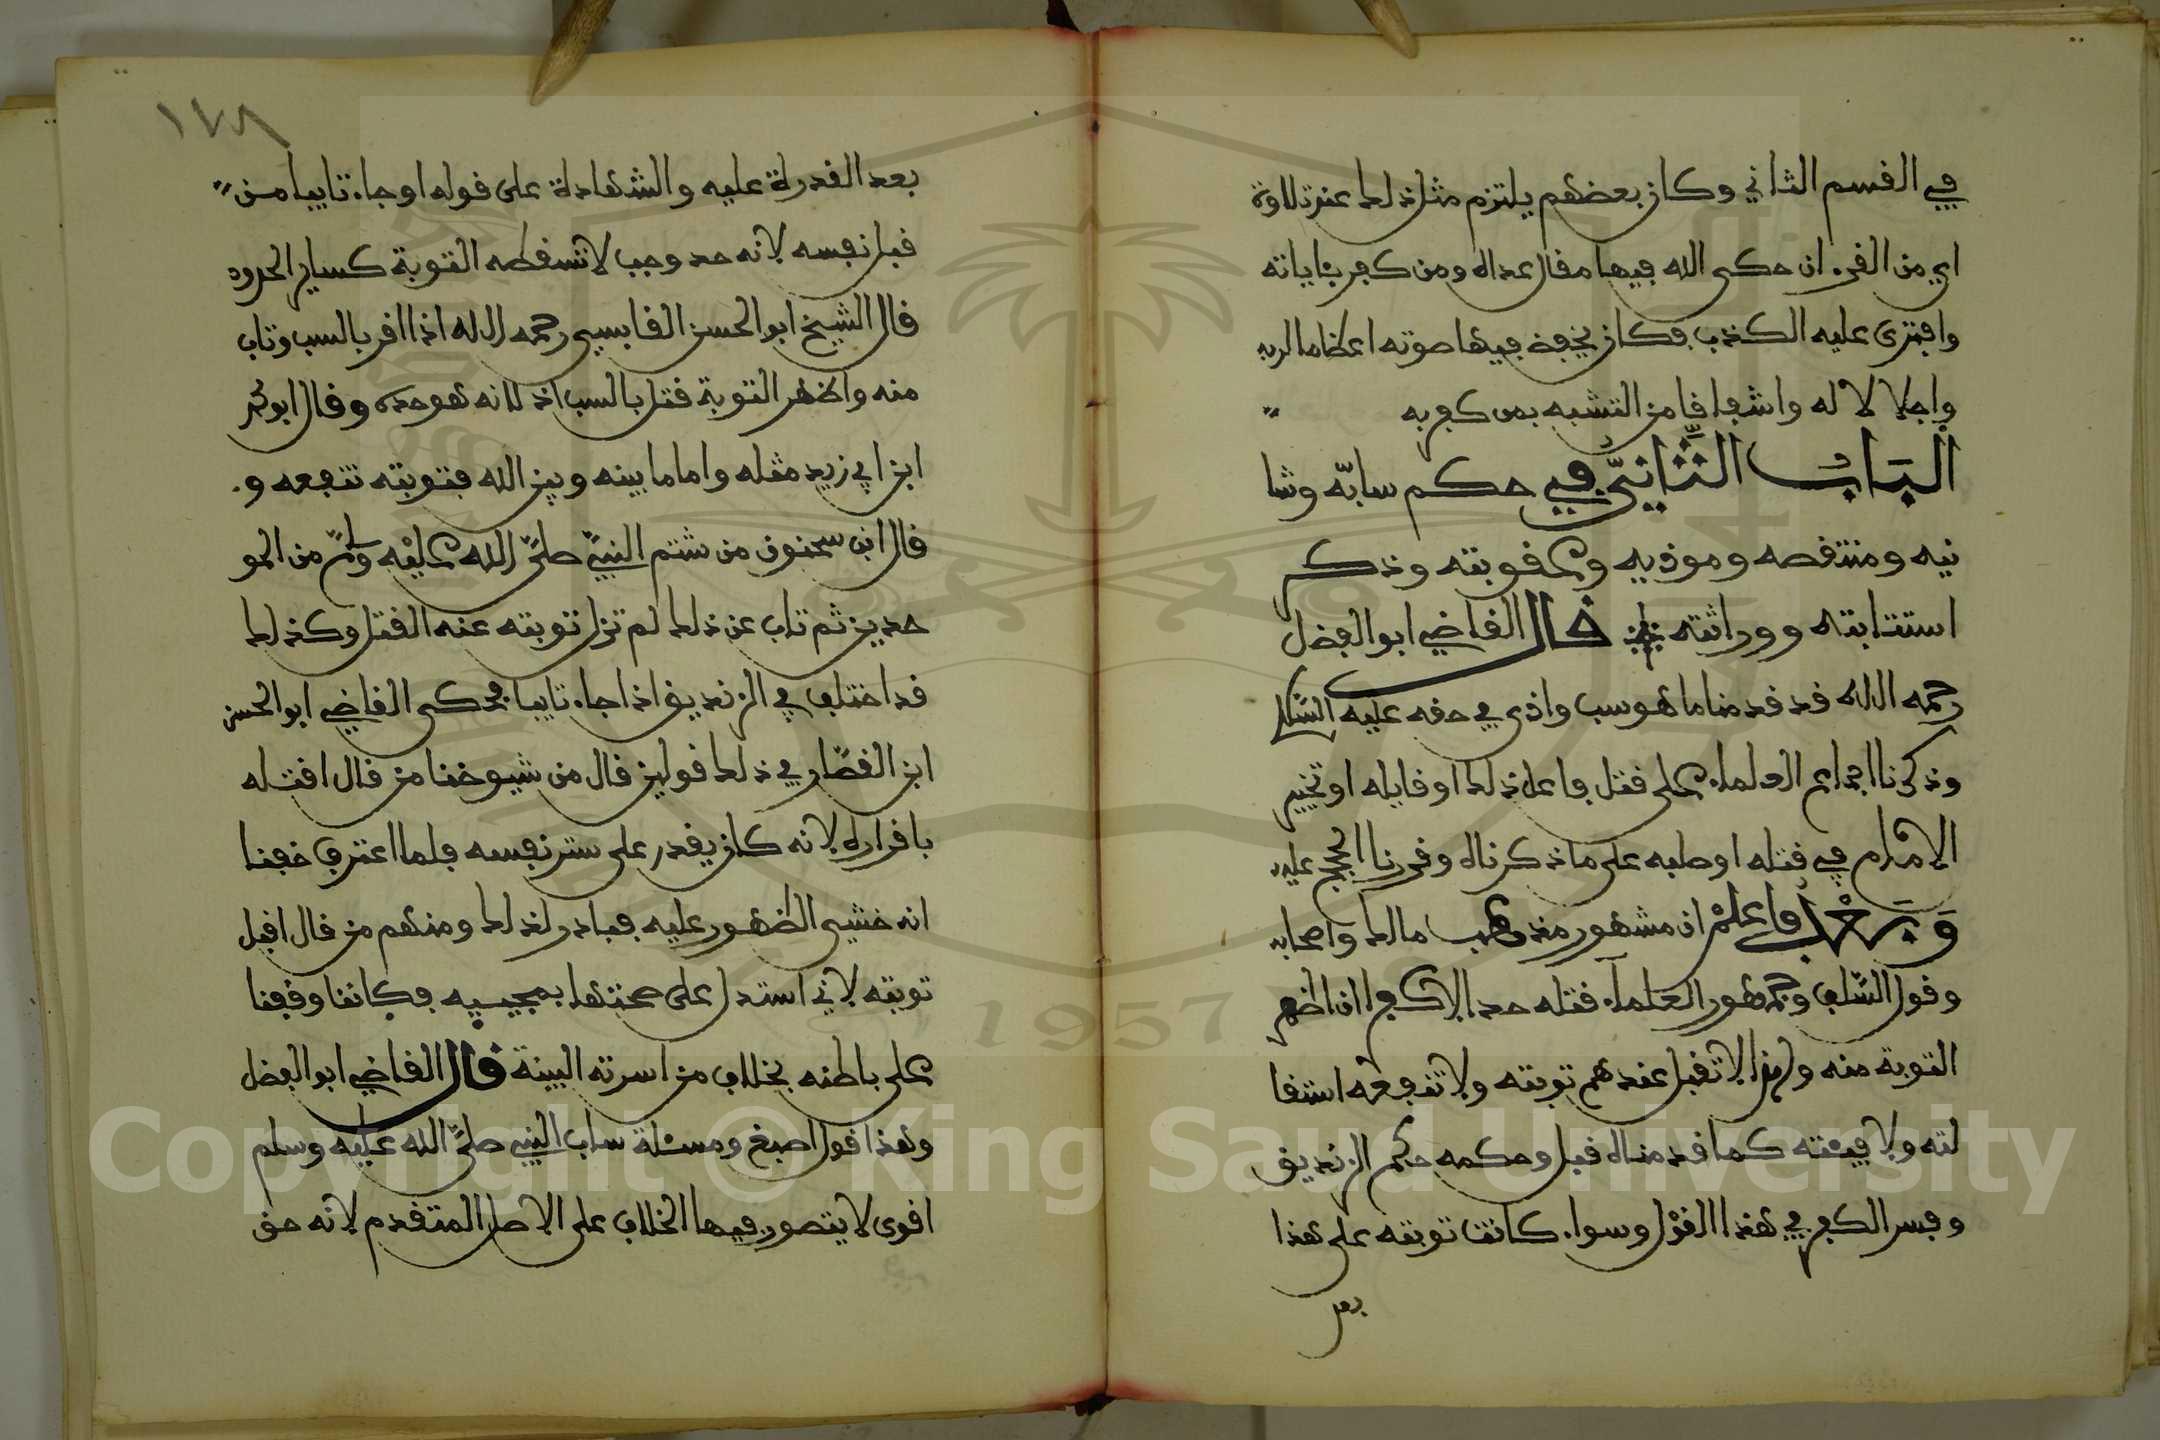 في القسم الثاني وكان بعضهم يلتزم مثل ذلك عند تلاوة
اي من القرءان حكى الله فيها مقال عداه ومن كفر بئاياته
وافترى عليه الكذب فكان يخفض فيها صوته اعظاما لربه
واجلالا له واشفاقا من التشبه بمن كفر به
الباب الثاني في حكم سابه وشا
نيه ومنتقصه وموذيه وعقوبته وذكر
استتابته ووراثته قال القاضي ابو الفضل
رحمه الله قد قدمنا ما هو سب واذى في حقه عليه السلام
وذكرنا اجماع العلماء على قتل فاعل ذلك او قايله او تخيير
الامام في قتله او صلبه على ما ذكرناه وقررنا الحجج عليه
وبعد فاعلم ان مشهور مذهب مالك واصحابه
وقول السلف وجمهور العلماء قتله حدا لا كفرا ان اظهر
التوبة منه ولهذا لا تقبل عندهم توبته ولا تنفعه استقا
لته ولا فيئته كما قدمناه قبل وحكمه حكم الزنديق
ومسر الكفر في هذا القول وسواء كانت توبته على هذا
بعد
١٧٨
بعد القدرة عليه والشهادة على قوله او جاء تايبا من
قبل نفسه لانه حد وجب لا تسقطه التوبة كساير الحدود
قال الشيخ ابو الحسن القابسي رحمه الله اذا اقر بالسب وتاب
منه واظهر التوبة قتل بالسب اذ لانه هو حده وقال ابو محمد
ابن ابي زيد مثله واما ما بينه وبين الله فتوبته تنفعه و
قال ابن سحنون من شتم النبي صلى الله عليه وسلم من المو
حدين ثم تاب عن ذلك لم تزل توبته عنه القتل وكذلك
قد اختلف في الزنديق اذا جاء تايبا فحكى القاضي ابو الحسن
ابن القصار في ذلك قولين قال من شيوخنا من قال اقتله
باقراره لانه كان يقدر على ستر نفسه فلما اعترف خفنا
انه خشي الظهور عليه فبادر لذلك ومنهم من قال اقبل
توبته لاني استدل على صحتها بمجييه فكاننا وقفنا
على باطنه بخلاف من اسرته البينة قال القاضي ابو الفضل
وهذا قول اصبغ ومسئلة ساب النبي صلى الله عليه وسلم
اقوى لا يتصور فيها الخلاف على الاصل المتقدم لانه حق
Copyright © King Saud University
1957